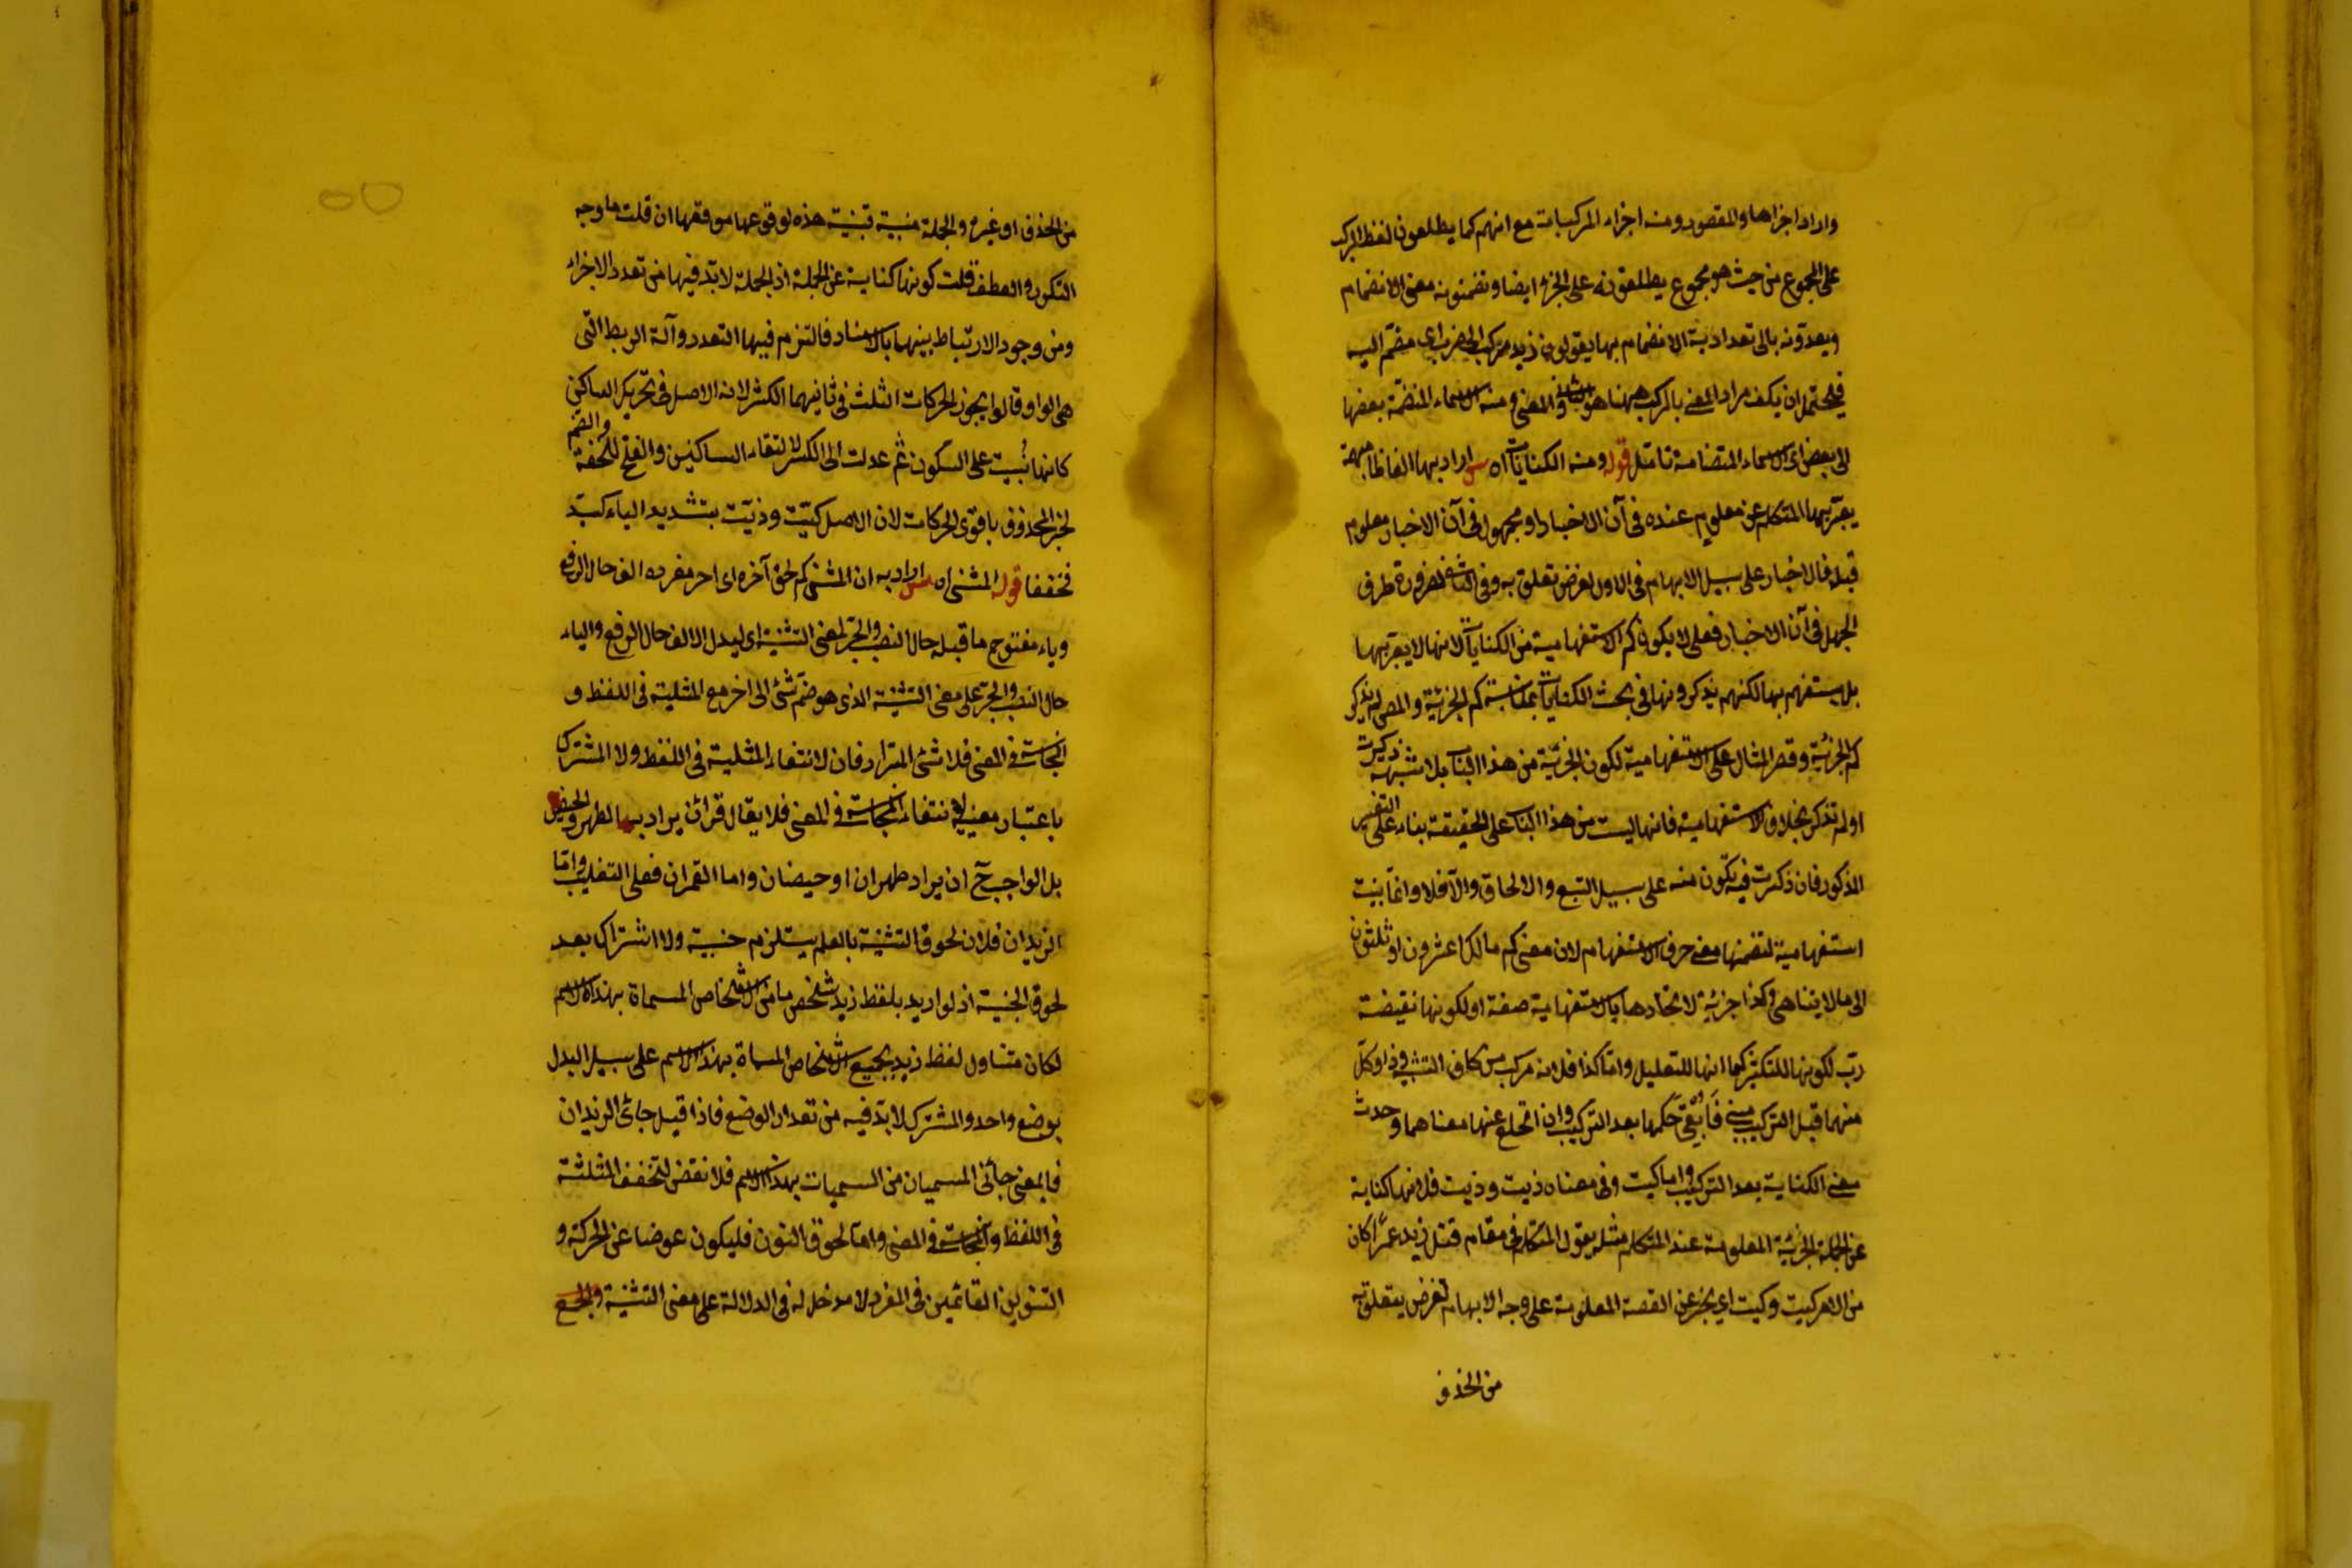 واراد اجزاها والمقصود ومنه اجزاء المركبات مع انهم كما يطلقون لفظ المركب
على المجموع من حيث هو مجموع يطلقونه على الجزء ايضا ويضمنونه معنى الانضمام
ويعدونه بالى تعدادية الانضمام بها يقولون زيد مركب الى ضرب اى منضم اليه
فيحتمل ان يكون مراد المصنف بالمركب ههنا هو والمعنى ومنه الاسماء المنضمة بعضها
الى بعض اى الاسماء المتضامة تامل قوله ومنه الكنايات اه س اراد بها الفاظا مبهمة
يعبر بها المتكلم عن معلوم عنده فى آن الاخبار او مجهول فى آن الاخبار معلوم
قبله فالاخبار على سبيل الابهام فى الاول لغرض تعلق به وفى الثانى لضرورة طرف
الجهل فى آن الاخبار فعلى لا يكون كم الاستفهامية من الكنايات لانها لا يعبر بها
بل يستفهم بها لكنهم يذكرونها فى بحث الكنايات بمناسبة كم الخبرية والمص لم يذكر
كم الخبرية وقصر المثال على الاستفهامية لكون الخبرية من هذا الباب بلا شبهة ذكرت
او لم تذكر بخلاف الاستفهامية فانها ليست من هذا الباب على الحقيقة بناء على التفسير
المذكور فان ذكرت فيه تكون منه على سبيل التبع والالحاق والا فلا وانما بنيت
استفهامية لتضمنها معنى حرف الاستفهام لان معنى كم مالك اعشرون او ثلثون
الى ما لا يتناهى وكذا خبرية لاتحادها بالاستفهامية صفة او لكونها نقيضة
رب لكونها للتكثير كما انها للتقليل واما كذا فلانه مركب من كاف التشبيه وذا وكل
منها قبل التركيب مبنى فابقى حكمها بعد التركيب وان انخلع عنها معناهما وحدث
معنى الكناية بعد التركيب واما كيت وفى معناه ذيت وذيت فلانها كناية
عن الجملة الخبرية المعلومة عند المتكلم مثله يقول المتكلم فى مقام قتل زيد عمرا كان
من الامر كيت وكيت اى يخبر عن القصة المعلومة على وجه الابهام لغرض يتعلق به
من الحذف
من الحذف او غيره والجملة مبنية فبنيت هذه لوقوعها موقعها ان قلت ما وجه
التكرر والعطف قلت كونها كناية عن الجملة اذ الجملة لا بد فيها من تعدد الاجزاء
ومن وجود الارتباط بينهما بالاسناد فالتزم فيها التعدد وآلة الربط التى
هى الواو وقالوا يجوز الحركات الثلث فى ثانيهما الكسر لانه الاصل فى تحريك الساكن
كانها بنيت على السكون ثم عدلت الى الكسر لالتقاء الساكنين والفتح للخفة والضم
لجبر المحذوف باقوى الحركات لان الاصل كيّت وذيّت بتشديد الياء كسيّد
فخففا قوله المثنى اه س اراد به ان المثنى كم لحق آخره اى اخر مفرده الف حال الرفع
وياء مفتوح ما قبله حال النصب والجر لمعنى التثنية اى ليدل الالف حال الرفع والياء
حال النصب والجر على معنى التثنية الذى هو ضم شئ الى اخر مع المثلية فى اللفظ و
التجانس فى المعنى فلا يثنى المترادفان لانتفاء المثلية فى اللفظ ولا المشترك
باعتبار معنييه لانتفاء التجانس فى المعنى فلا يقال قرآن يراد بهما الطهر والحيض
بل الواجب ح ان يراد طهران او حيضان واما القمران فعلى التغليب واما
الزيدان فلان لحوق التثنية بالعلم يستلزم جنسية ولا اشتراك بعد
لحوق الجنسية اذ لو اريد بلفظ زيد شخص ما من الاشخاص المسماة بهذا الاسم
لكان متناول لفظ زيد بجميع الاشخاص المسماة بهذا الاسم على سبيل البدل
بوضع واحد والمشترك لا بد فيه من تعداد الوضع فاذا قيل جائى الزيدان
فالمعنى جائنى المسميان من المسميات بهذا الاسم فلا نقض لتحقق المثلثة
فى اللفظ والتجانس فى المعنى واما لحوق النون فليكون عوضا عن الحركة و
التنوين القائمين فى المفرد لا مدخل له فى الدلالة على معنى التثنية والجمع